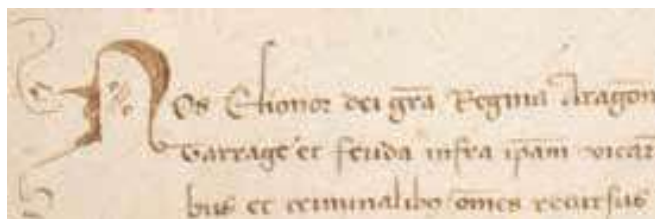 Nos Elionor dei gr̃a Regina Aragon
Garrage et feuda infra ip̃am vicar
bus et criminalibȝ om̃es recursus